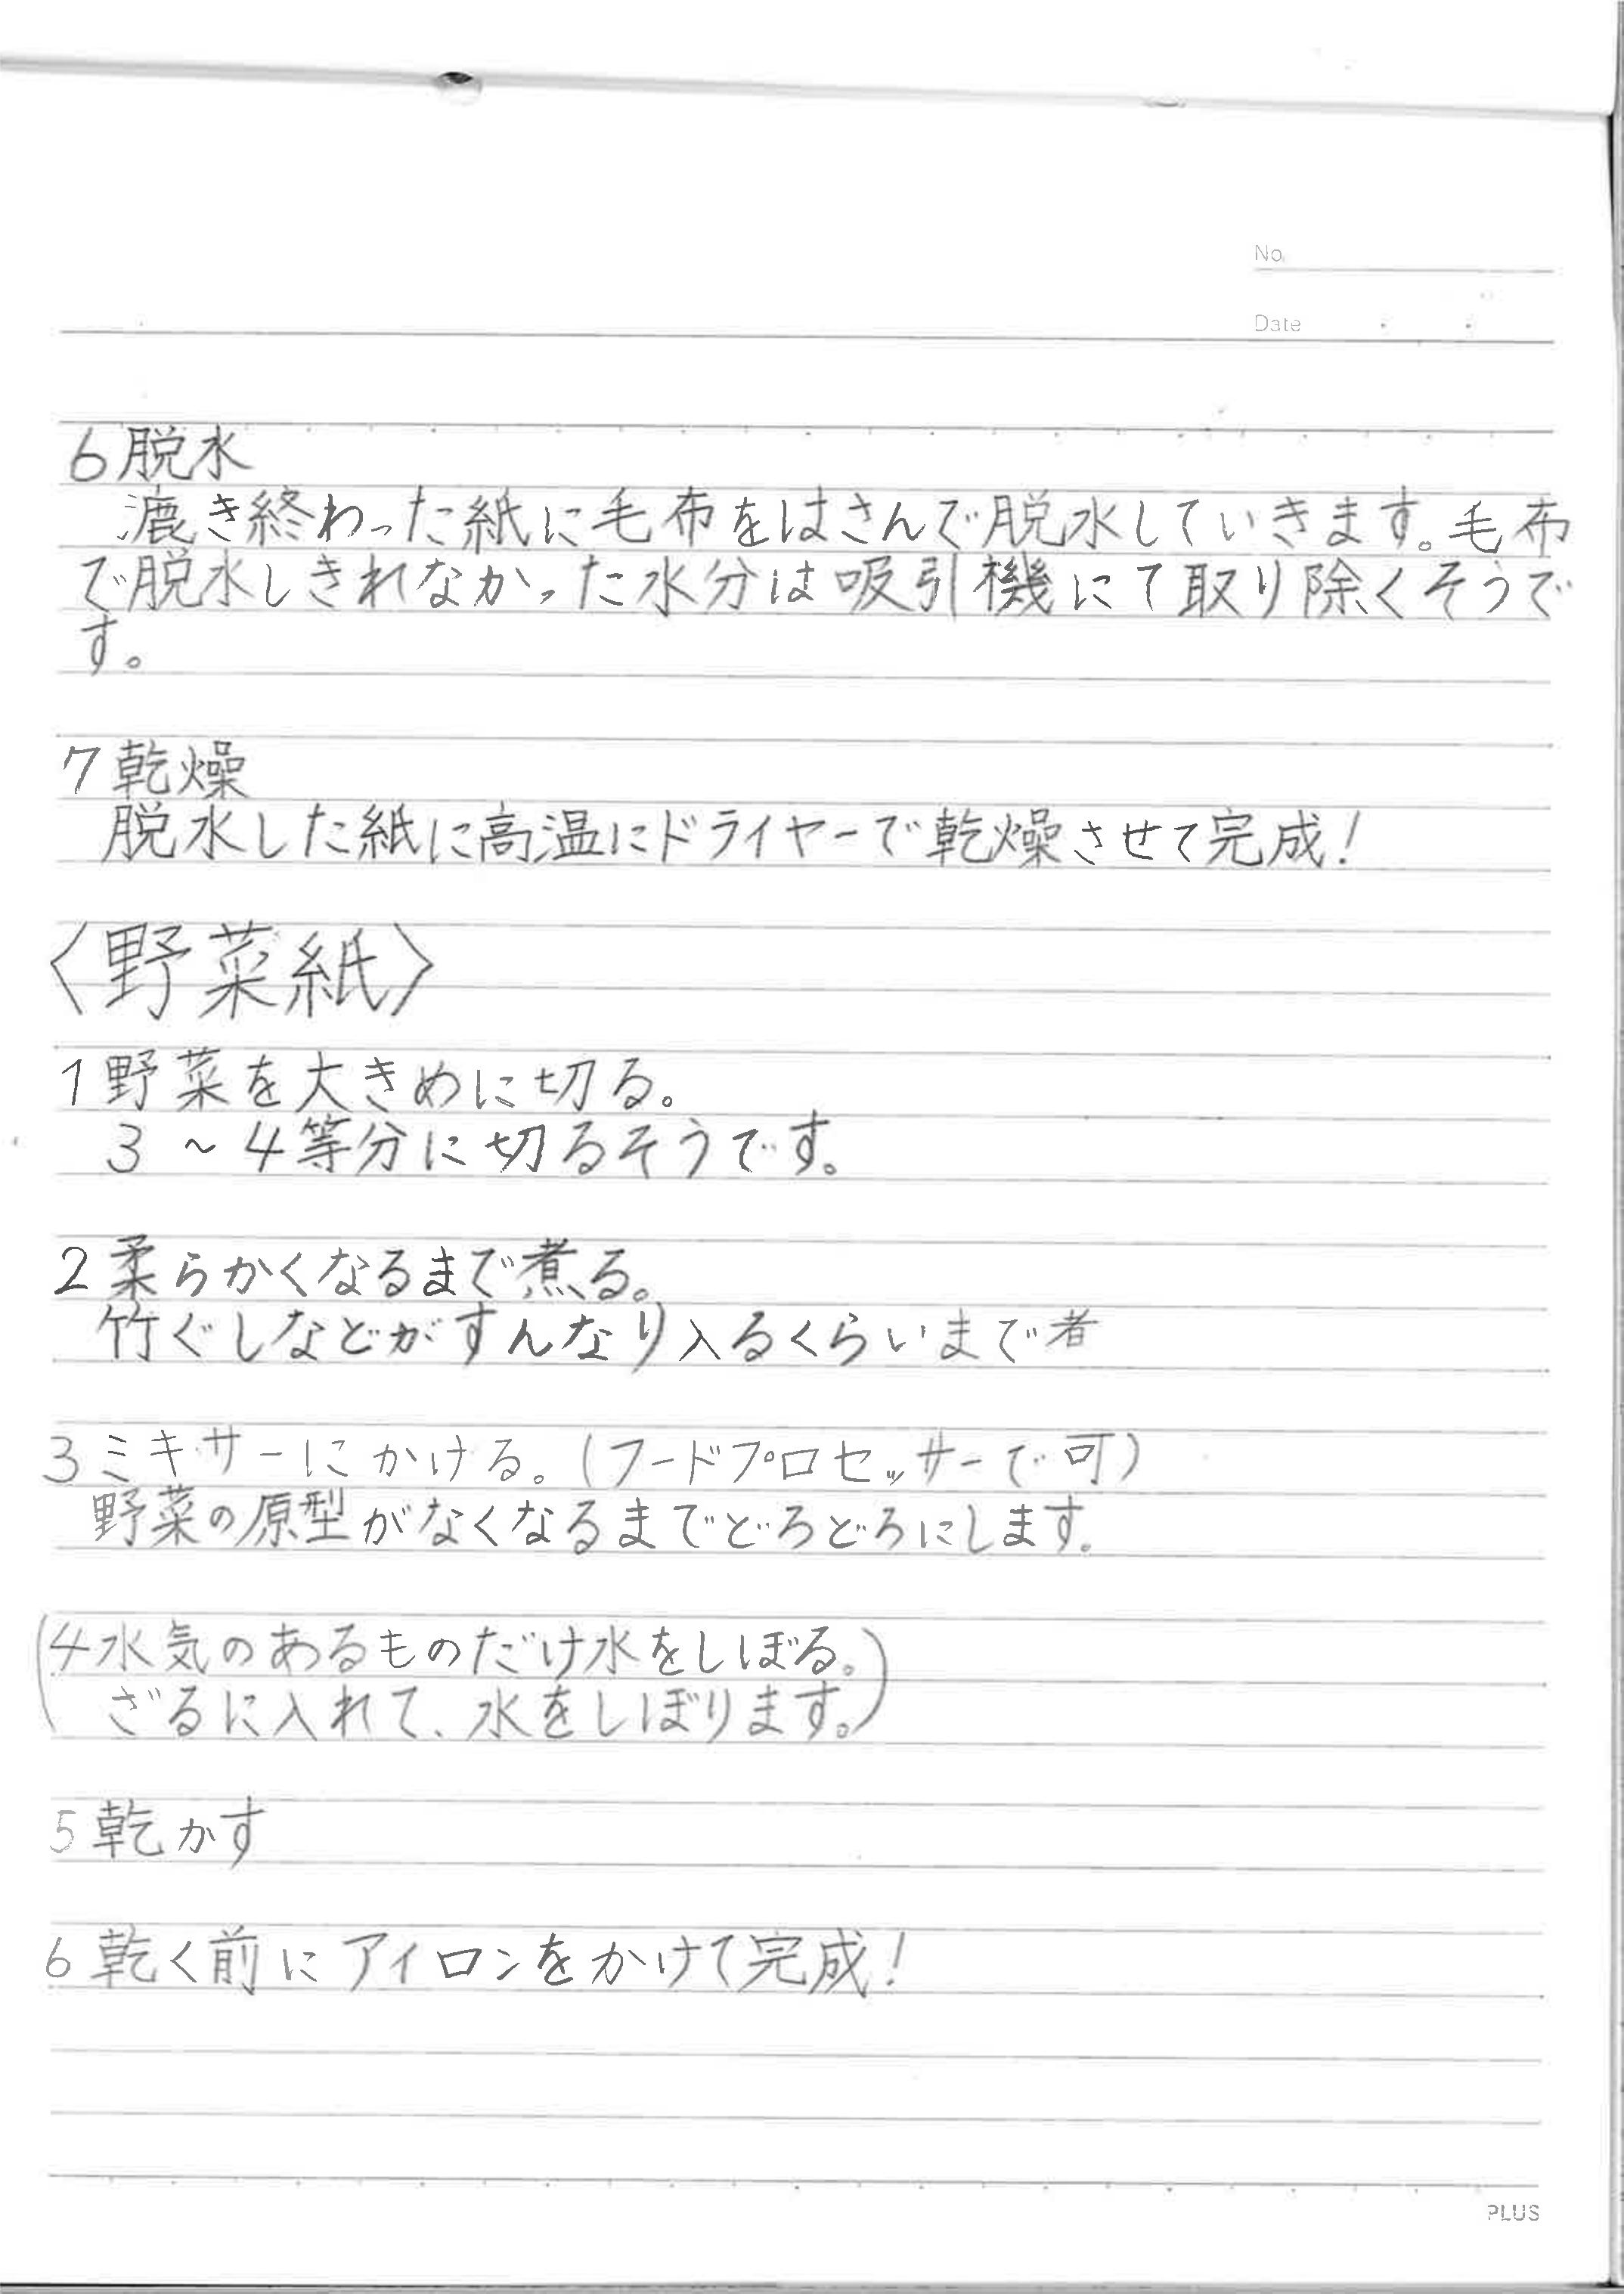 No.
Date
6 脱水
漉き終わった紙に毛布をはさんで脱水していきます。毛布
で脱水しきれなかった水分は吸引機にて取り除くそうで
す。
7 乾燥
脱水した紙に高温にドライヤーで乾燥させて完成!
〈野菜紙〉
1 野菜を大きめに切る。
3 ~ 4等分に切るそうです。
2 柔らかくなるまで煮る。
竹ぐしなどがすんなり入るくらいまで者
3 ミキサーにかける。(フードプロセッサーで可)
野菜の原型がなくなるまでどろどろにします。
(4 水気のあるものだけ水をしぼる。
ざるに入れて、水をしぼります。)
5 乾かす
6 乾く前にアイロンをかけて完成!
PLUS